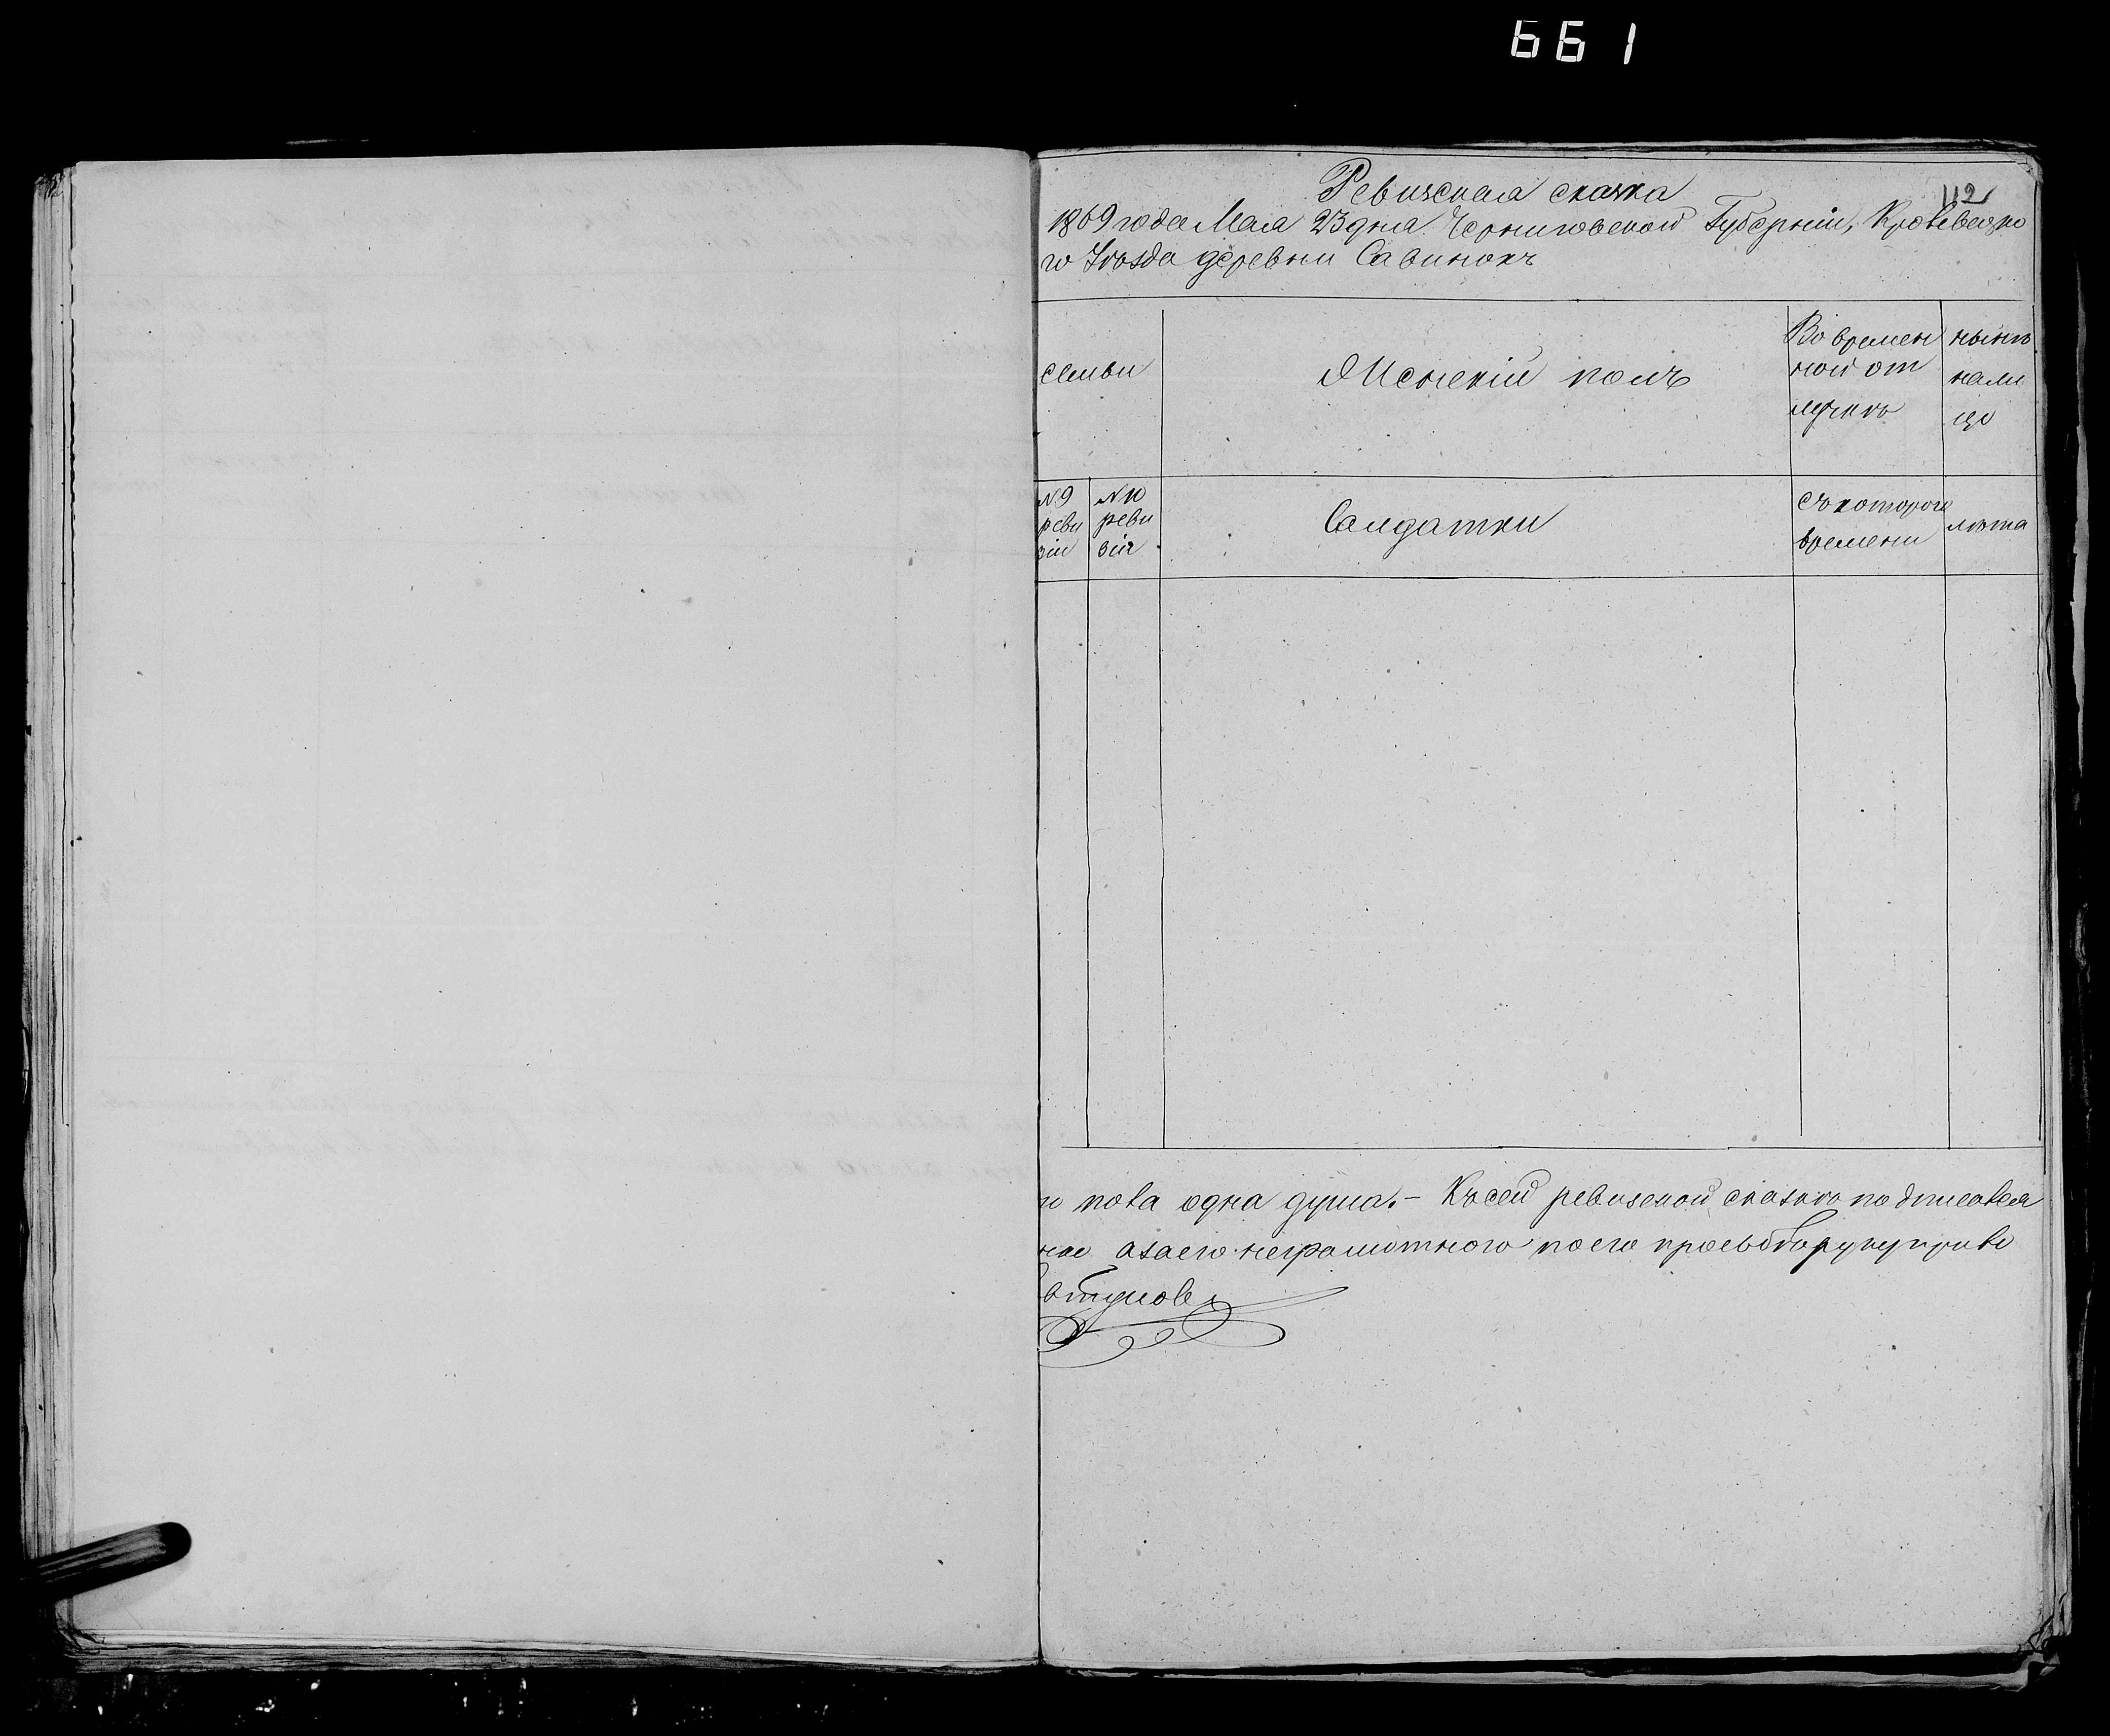 661
112
Ревизская сказка
1869 года Мая 23 дня Черниговской Губерніи, Кролевецко
го Уѣзда деревни Савинокъ
семьи
Женскій полъ
Во времен
ной от
лучкѣ
нынѣ
нали
цо
N 9
реви
зіи
N 10
реви
зія
Салдатки
съ котораго
времени
лѣта
пола одна душа. – Къ сей ревизской сказкѣ подписался
а за его неграмотного по его прозьбѣ руку прило